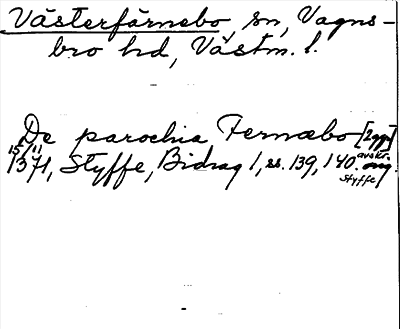 Västerfärnebo, sn, Vagns-
bro hd, Västm. l.
De parochia Fernæbo [2 ggr]
15/11 1371, Styffe, Bidrag 1, ss. 139, 140. avskr.
Styffe